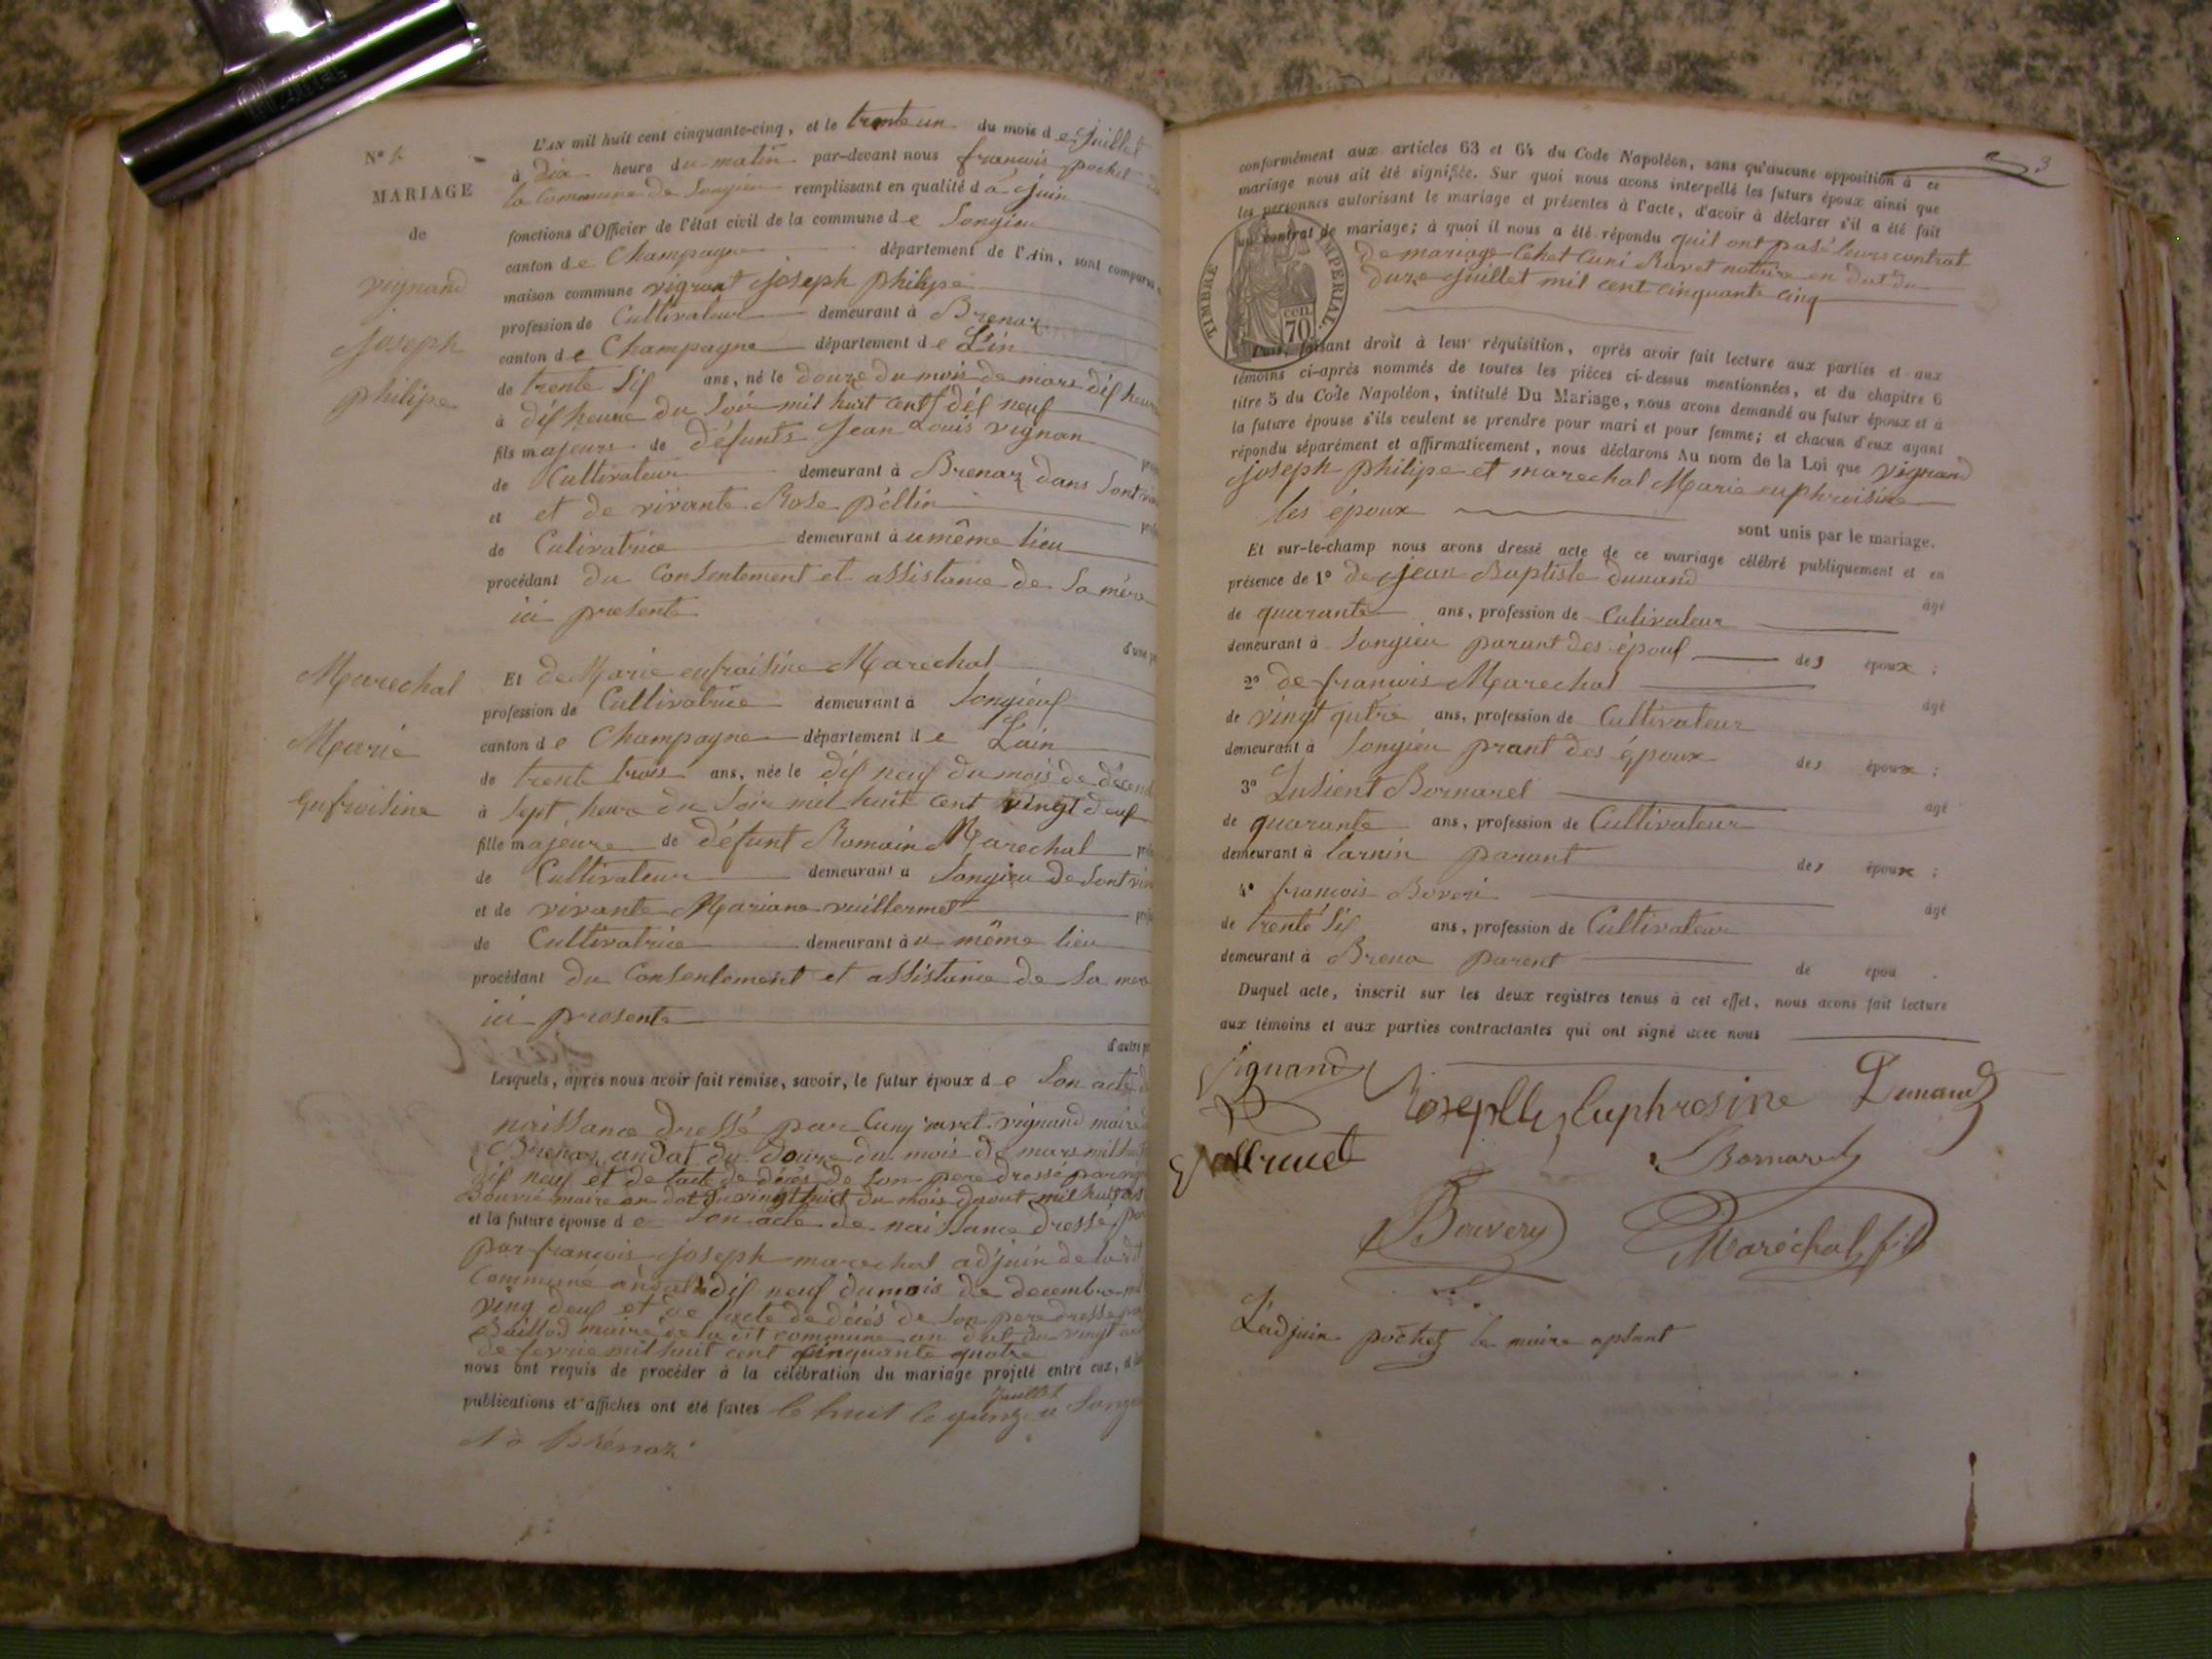 L'AN mil huit cent cinquante-cinq, et le trente un du mois de Juillet
à Dix heure du matin par-devant nous francois pochet
la Commune de Songieu remplissant en qualité d'a'djuin
fonctions d'Officier de l'état civil de la commune de Songieu
canton de Champagne département de l'Ain, sont comparus
maison commune vignant joseph philipe
profession de Cultivateur demeurant à Brenaz
canton de Champagne département de L'in
de trente Sis ans, né le douze du mois de mars dis heure
à dis heure du Soir mil huit cent dis neuf
fils majeurs de défunts Jean Louis vignan
de Cultivateur demeurant à Brenaz dans Sont
et et de vivante Rose péllin
de Cultivatrice demeurant à u même lieu
procédant du Consentement et assistance de Sa mère
ici presente
N°
MARIAGE
de
vignand
joseph
philipe
d'une
Et de Marie eufraisine Marechal
profession de Cultivatrice demeurant à Songieus
canton de Champagne département de Lain
de trente trois ans, née le dis neuf du mois de décemb
à Sept heure du Soir mil huit cent vingt deus
fille majeure de défunt Romain Marechal
de Cultivateur demeurant à Songieu de Sont
et de vivante Mariane vuillermet
de Cultivatrice demeurant à u même lieu
procédant du Consentement et assistance de Sa mere
ici presente
Marechal
Marie
Eufroisine
d'autre
Lesquels, après nous avoir fait remise, savoir, le futur époux de Son acte
naissance dressé par vignand maire
Brenaz andat du douze du mois de mars mil
dis neuf et de lacte de décés de Son pere dressé par
maire an dat du vingt huit du mois daout mil huit
et la future épouse de Son acte de naissance dressé
par francois joseph marechal adjuin de la dit
Commune andat dis neuf du mois de decembre
ving deus et de lacte de décés de Son pere dresse
Baillod maire de la dit commune an dat du vingt
de fevrie mil huit cent cinquante quatre
nous ont requis de procéder à la célébration du mariage projeté entre eux,
publications et affiches ont été faites le huit le quinze Juillet a Songieu
et à Brénaz
3
conformément aux articles 63 et 64 du Code Napoléon, sans qu'aucune opposition à ce
mariage nous ait été signifiée. Sur quoi nous avons interpellé les futurs époux ainsi que
les personnes autorisant le mariage et présentes à l'acte, d'avoir à déclarer s'il a été fait
un contrat de mariage; à quoi il nous a été répondu quil ont pasé leurs contrat
de mariage Chet Cuni Ravet notaire en dat du
duze Juillet mil cent cinquante cinq
TIMBRE IMPERIAL.
70 cen.
Puis, faisant droit à leur réquisition, après avoir fait lecture aux parties et aux
témoins ci-après nommés de toutes les pièces ci-dessus mentionnées, et du chapitre 6
titre 5 du Code Napoléon, intitulé Du Mariage, nous avons demandé au futur époux et à
la future épouse s'ils veulent se prendre pour mari et pour femme; et chacun d'eux ayant
répondu séparément et affirmativement, nous déclarons Au nom de la Loi que vignand
joseph philipe et marechal Marie euphroisine
les époux
sont unis par le mariage.
Et sur-le-champ nous avons dressé acte de ce mariage célébré publiquement et en
présence de 1° de jean Baptiste dunand âgé
de quarante ans, profession de Cultivateur
demeurant à Songieu parant des épous des époux ;
2° de francois Marechal âgé
de vingt qutre ans, profession de Cultivateur
demeurant à Songieu prant des époux des époux ;
3° Lusient Bornarel âgé
de quarante ans, profession de Cultivateur
demeurant à parant des époux ;
4° francois Boveri âgé
de trente Sis ans, profession de Cultivateur
demeurant à Brena parent de épou .
Duquel acte, inscrit sur les deux registres tenus à cet effet, nous avons fait lecture
aux témoins et aux parties contractantes qui ont signé avec nous
Vignand Joseph Euphrosine Dunand
Bornarel
Bouvery Maréchal fils
L'adjuin pochet le maire apsant